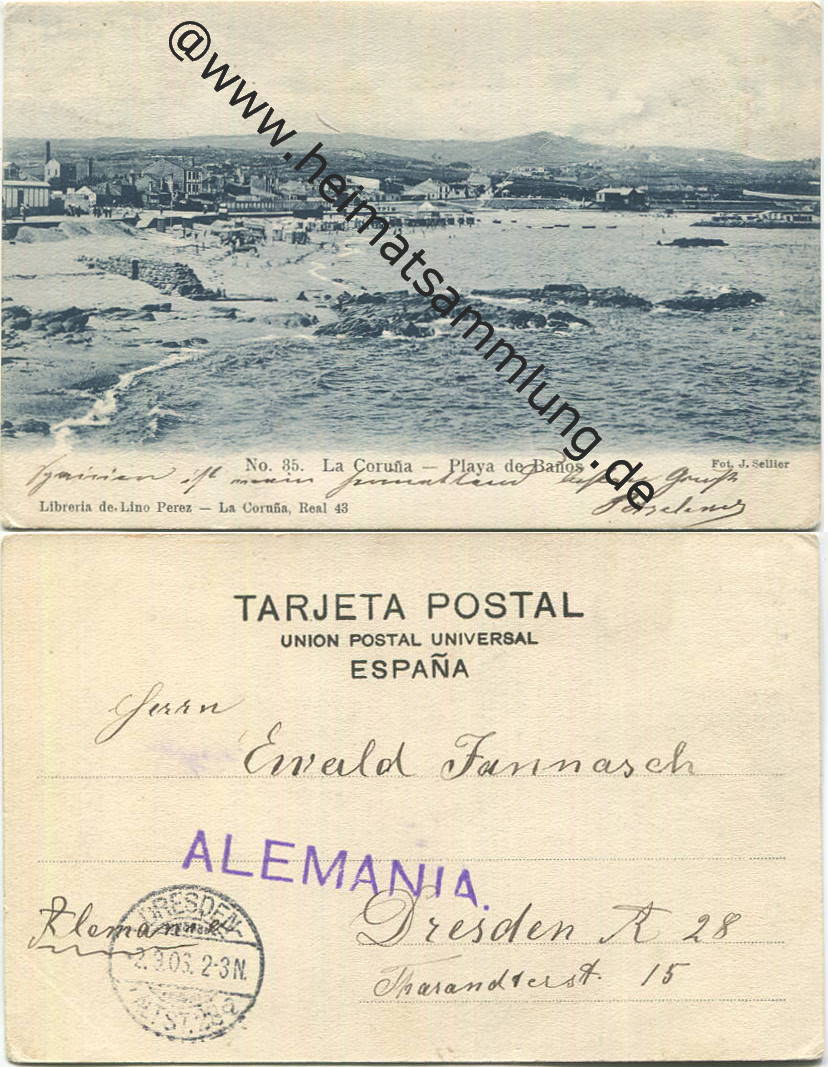 @www.heimatsammlung.de
No. 35. La Coruña — Playa de Baños
Fot. J. Sellier
ist mein Gruß
Libreria de Lino Perez — La Coruña, Real 43
TARJETA POSTAL
UNION POSTAL UNIVERSAL
ESPAÑA
Herrn
Ewald Jannasch
ALEMANIA.
DRESDEN-
2.9.03. 2-3N.
ALTST. 28a
Dresden A 28
Tharandterst. 15